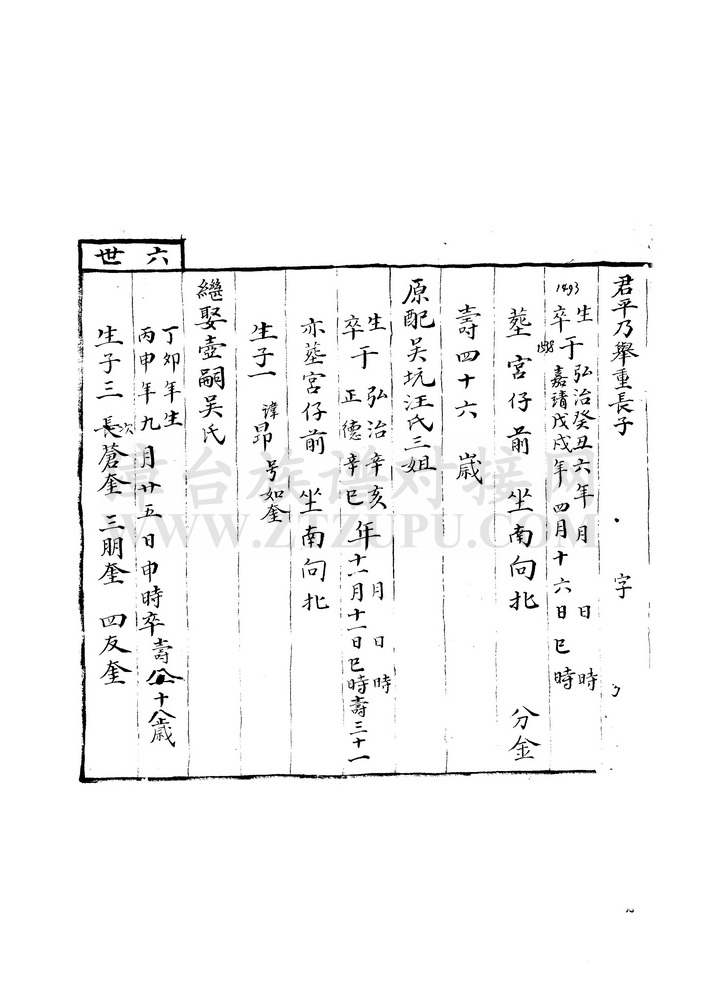 君平乃舉重長子 字
1493 生于弘治癸丑六年 月 日 時
1538 卒于嘉靖戊戌年四月十六日巳時
塟宮仔前 坐南向北 分金
壽四十六歲
原配吴坑汪氏三姐
生于弘治辛亥年 月 日 時
卒于正德辛巳年十一月十一日巳時壽三十一
亦塟宮仔前 坐南向北
生子一 諱昂 号如奎
繼娶壺嗣吴氏
丁卯年生
丙申年九月廿五日申時卒壽 十八歲
生子三 長次蒼奎 三朋奎 四友奎
六世
臺台族谱对接网
WWW.ZTZUPU.COM